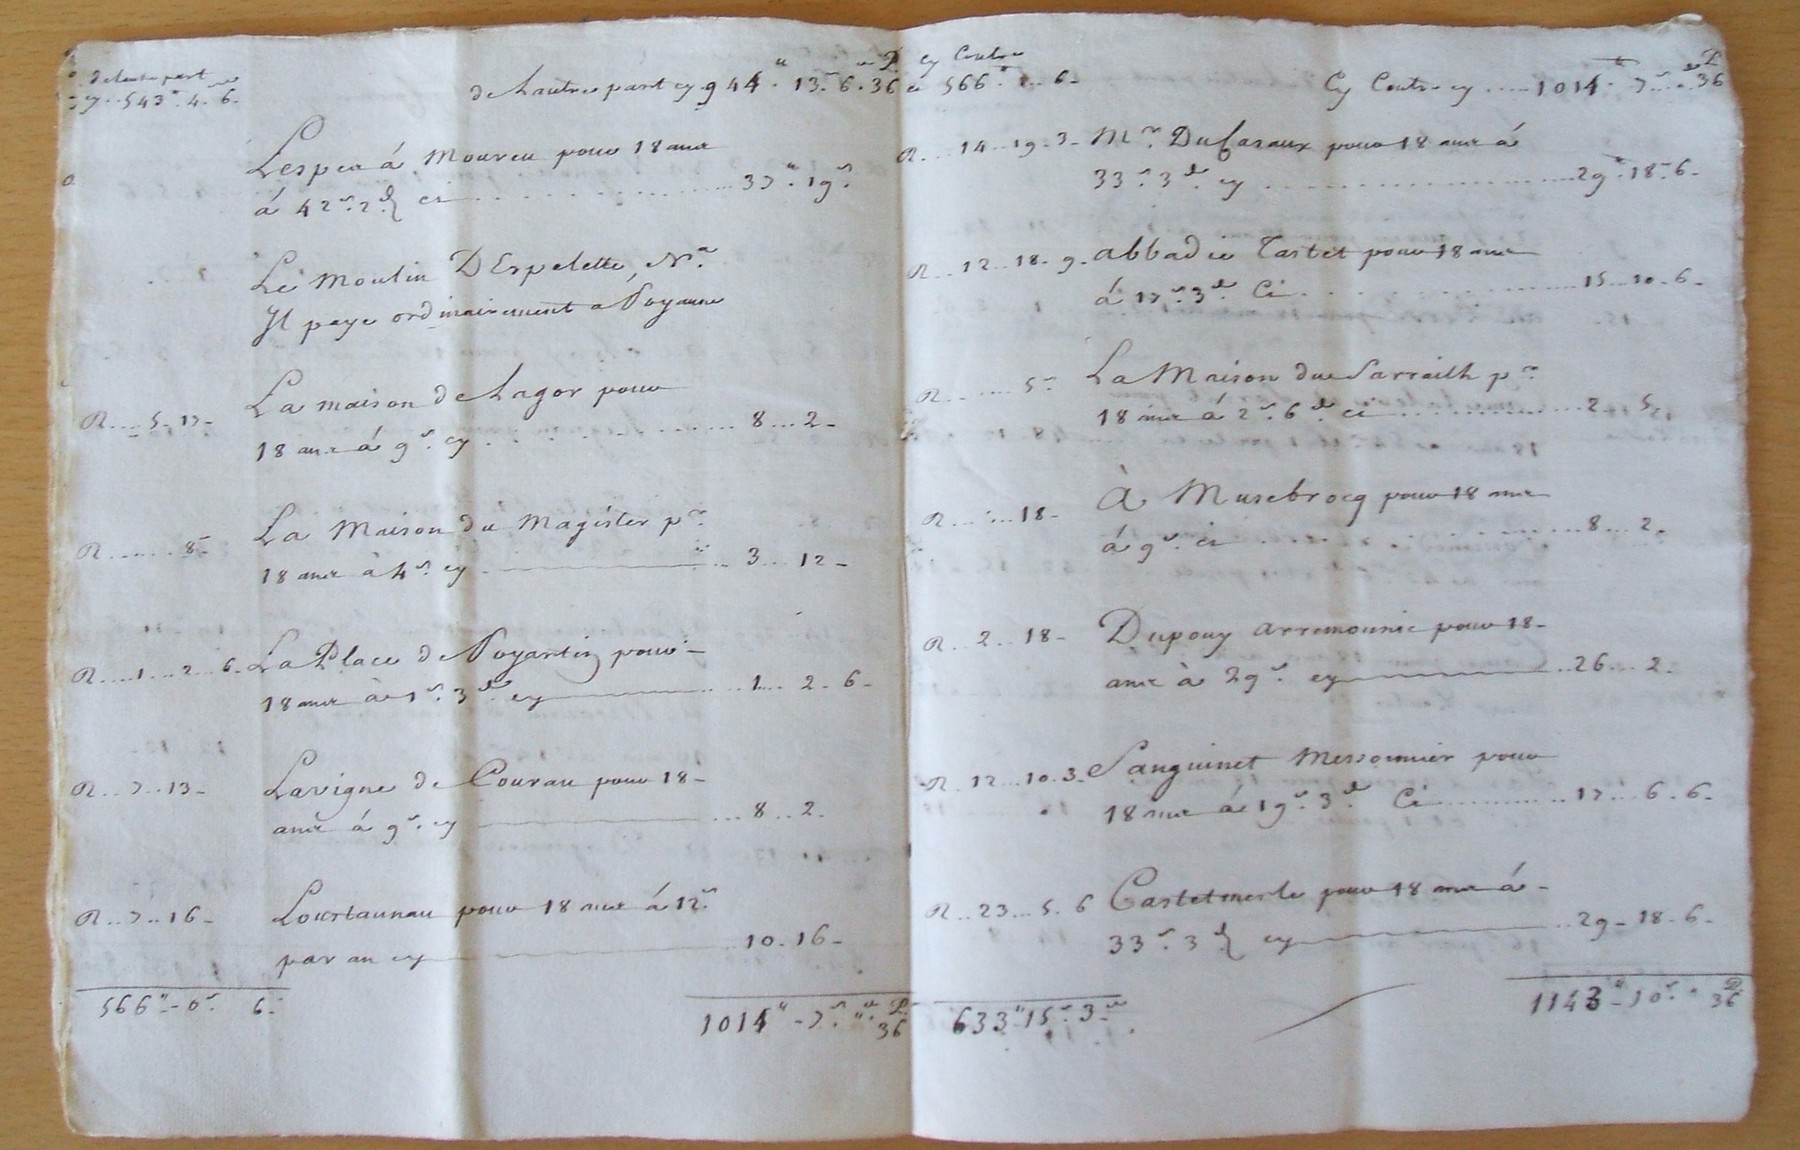 de lautre part
cy .. 543" 4 s 6
de lautre part cy 944" 13 s 6 d 36
Lespea á Moureu pour 18 ans
á 42 s 2 d ci ........ 37" 19 s
Le moulin DEspelette, Na
Il paye ordinairement a Poyanne
La maison de Lagor pour
R .... 5 .. 17 -
18 ans á 9 s cy ........ 8 ... 2 -
La Maison du Magister pr
R ....... 8 s
18 ans à 4 s cy ........ 3 ... 12 -
R .... 1 ... 2 ... 6 - La Place de Poyartin pour -
18 ans à 1 s 3 d cy ........ 1 ... 2 - 6 -
R .. 7 .. 13 - Lavigne de Courau pour 18 -
ans á 9 s cy ........ 8 ... 2 -
R .. 7 .. 16 - Loustaunau pour 18 ans á 12 s
par an cy ........ 10 - 16 -
566" - 0 s 6 - 1014" - 7 s " 36
Cy Contre
ci 566" ... 6 - Cy Contre cy ..... 1014" 7 s 36
R .... 14 .. 19 - 3 - Mr. Ducasaux pour 18 ans á
33 s 3 d cy ........ 29" 18 s 6 -
R ... 12 .. 18 - 9 - abbadie Tastet pour 18 ans
á 17 s 3 d Ci ........ 15 ... 10 - 6 -
R ........ 5 s La Maison du Sarrailh pr
18 ans á 2 s 6 d ci ........ 2 ... 5
R ....... 18 - A Musebrocq pour 18 ans
á 9 s ci ........ 8 ... 2 -
R .. 2 ... 18 - Dupouy arremounic pour 18 -
ans à 29 s cy ........ 26 ... 2 -
R .. 12 ... 10 - 3 - Sanguinet Messonnier pour
18 ans á 19 s 3 d Ci ........ 17 ... 6 - 6 -
R .. 23 ... 5 - 6 Castetmerle pour 18 ans á -
33 s 3 d cy ........ 29 - 18 - 6 -
633" 15 s 3 d 1143" - 10 s " 36